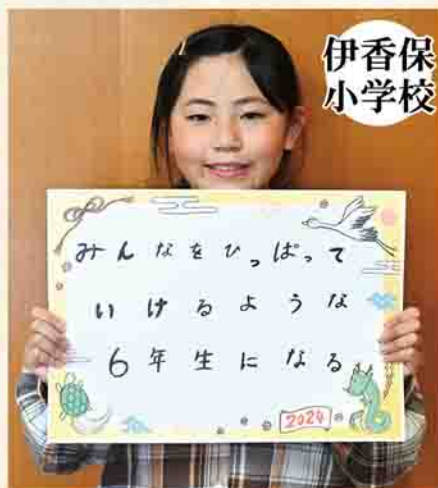 伊香保
小学校
みんなをひっぱって
いけるような
6年生になる
2024